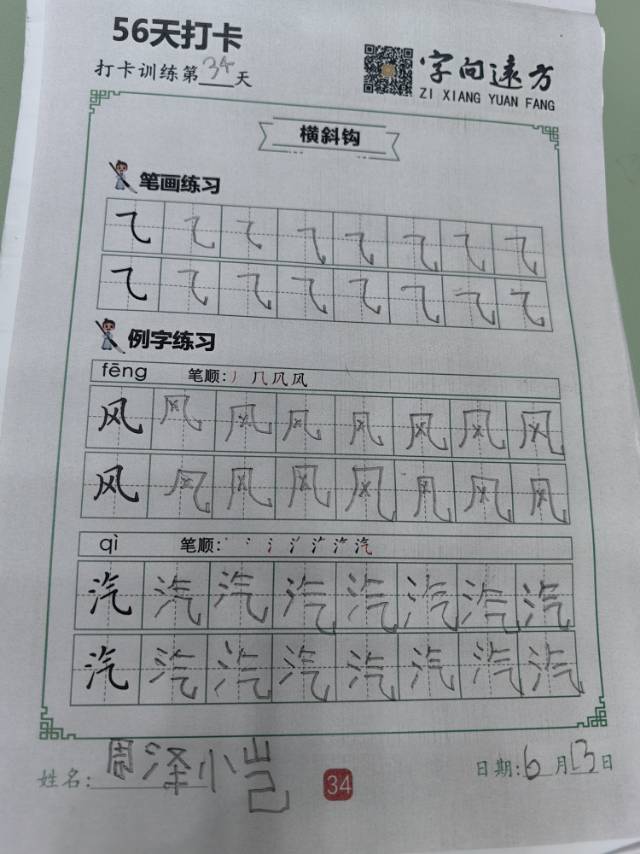 56天打卡
打卡训练第34天
字向远方
ZI XIANG YUAN FANG
横斜钩
笔画练习
⺄ ⺄ ⺄ ⺄ ⺄ ⺄ ⺄ ⺄
⺄ ⺄ ⺄ ⺄ ⺄ ⺄ ⺄ ⺄
例字练习
fēng 笔顺: 丿 几 风 风
风 风 风 风 风 风 风 风
风 风 风 风 风 风 风 风
qì 笔顺:
汽 汽 汽 汽 汽 汽 汽 汽
汽 汽 汽 汽 汽 汽 汽 汽
姓名: 周泽小
34
日期: 6月13日